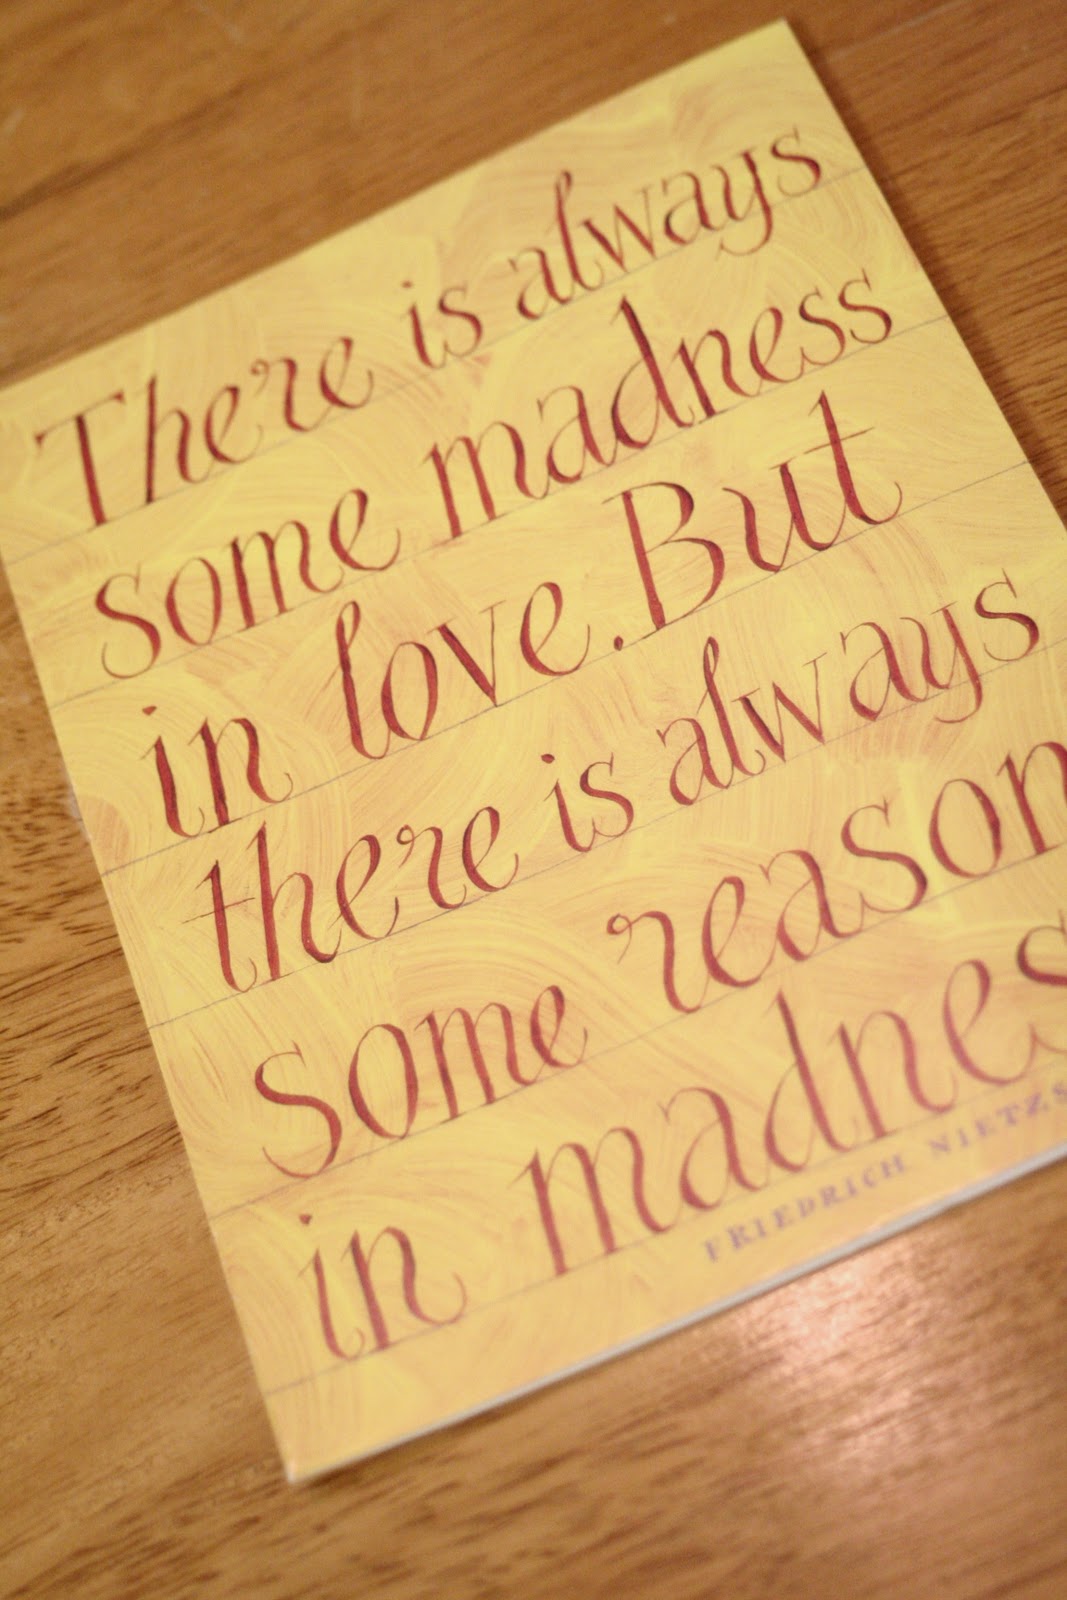 There is always
some madness
in love. But
there is always
some reason
in madnes
FRIEDRICH NIETZS